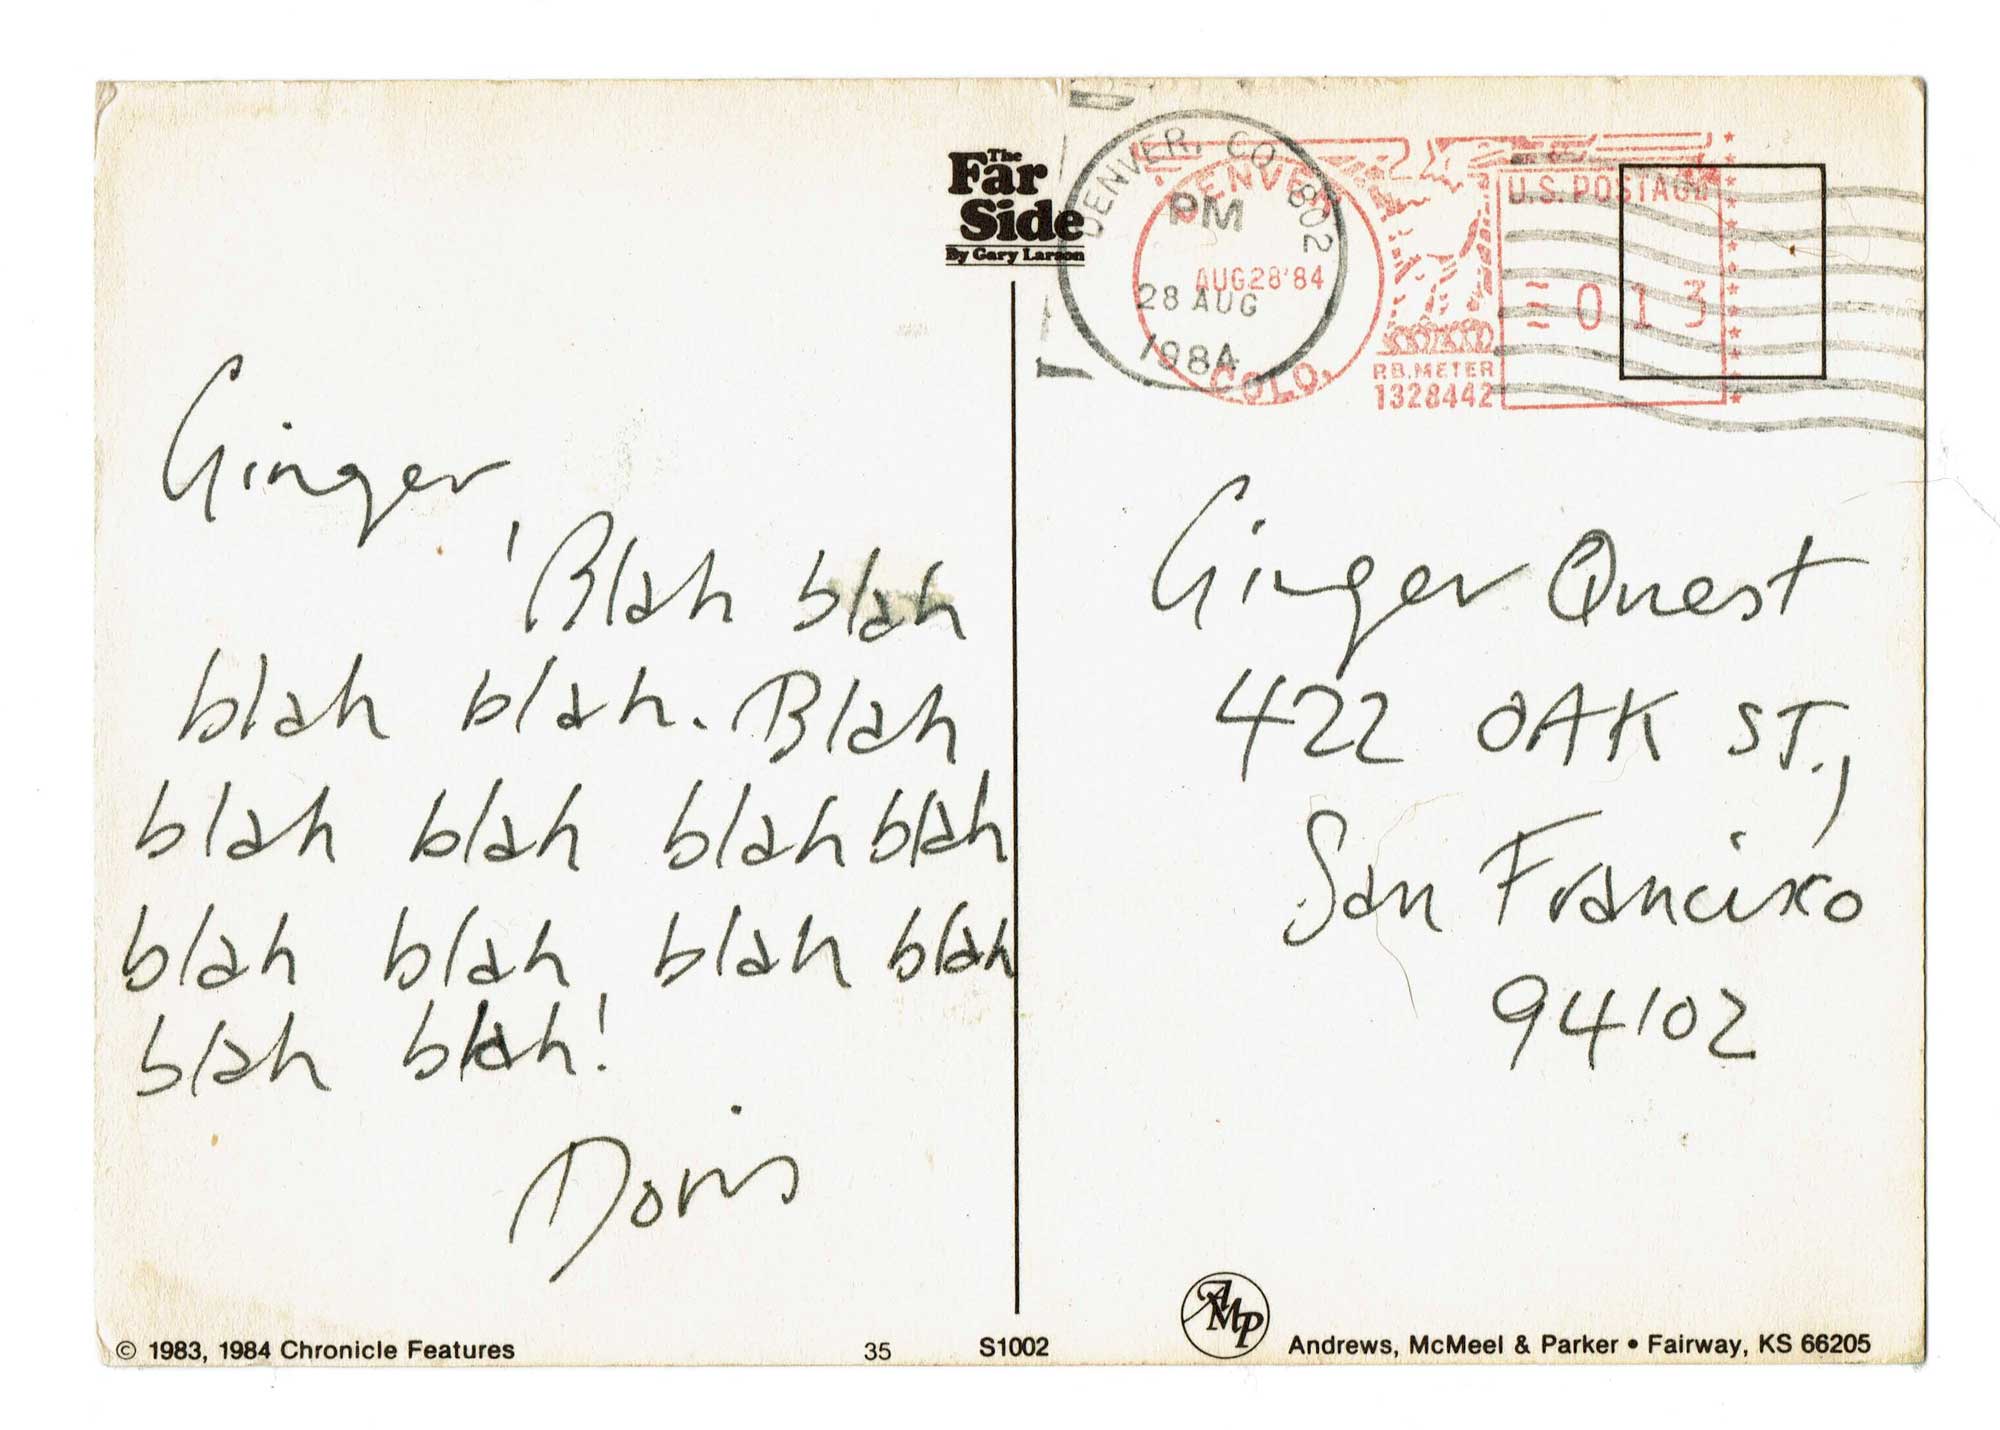 The
Far
Side
By Gary Larson
DENVER, CO 802
PM
28 AUG
1984
DENVER
AUG 28 '84
COLO.
P.B. METER
1328442
U.S. POSTAGE
013
Ginger,
Blah blah
blah blah. Blah
blah blah blah blah
blah blah, blah blah
blah blah!
Doris
Ginger Quest
422 OAK ST.,
San Francisco
94102
© 1983, 1984 Chronicle Features
35
S1002
AMP
Andrews, McMeel & Parker • Fairway, KS 66205